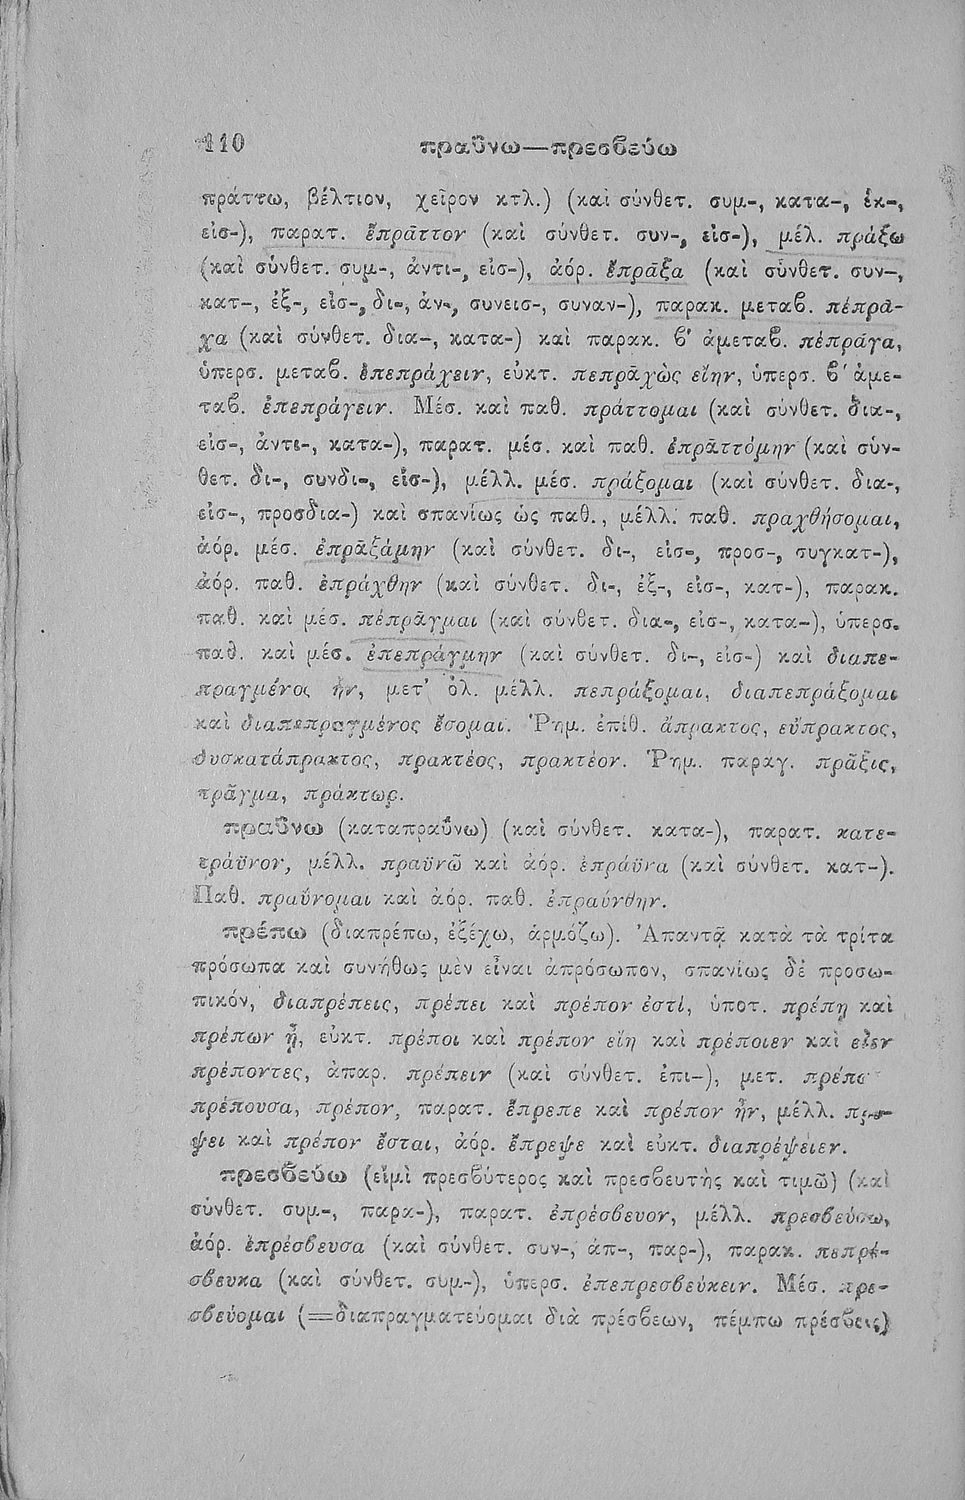 110 πραΰνω—πρεσβεύω
πράττω, βέλτιον, χεῖρον κτλ.) (καὶ σύνθετ. συμ-, κατα-, ἐκ-,
εἰσ-), παρατ. ἔπρᾱττον (καὶ σύνθετ. συν-, εἰσ-), μέλ. πράξω
(καὶ σύνθετ. συμ-, ἀντι-, εἰσ-), ἀόρ. ἔπρᾱξα (καὶ σύνθετ. συν-,
κατ-, ἐξ-, εἰσ-, δι-, ἀν-, συνεισ-, συναν-), παρακ. μεταβ. πέπρᾱ-
χα (καὶ σύνθετ. δια-, κατα-) καὶ παρακ. β' ἀμεταβ. πέπρᾱγα,
ὑπερσ. μεταβ. ἐπεπράχειν, εὐκτ. πεπρᾱχὼς εἴην, ὑπερσ. β' ἀμε-
ταβ. ἐπεπράγειν. Μέσ. καὶ παθ. πράττομαι (καὶ σύνθετ. δια-,
εἰσ-, ἀντι-, κατα-), παρατ. μέσ. καὶ παθ. ἐπρᾱττόμην (καὶ σύν-
θετ. δι-, συνδι-, εἰσ-), μέλλ. μέσ. πράξομαι (καὶ σύνθετ. δια-,
εἰσ-, προσδια-) καὶ σπανίως ὡς παθ., μέλλ. παθ. πραχθήσομαι,
ἀόρ. μέσ. ἐπρᾱξάμην (καὶ σύνθετ. δι-, εἰσ-, προσ-, συγκατ-),
ἀόρ. παθ. ἐπράχθην (καὶ σύνθετ. δι-, ἐξ-, εἰσ-, κατ-), παρακ.
παθ. καὶ μέσ. πέπρᾱγμαι (καὶ σύνθετ. δια-, εἰσ-, κατα-), ὑπερσ.
παθ. καὶ μέσ. ἐπεπράγμην (καὶ σύνθετ. δι-, εἰσ-) καὶ διαπε-
πραγμένος ἦν, μετ' ὀλ. μέλλ. πεπράξομαι, διαπεπράξομαι
καὶ διαπεπραγμένος ἔσομαι. Ῥημ. ἐπίθ. ἄπρακτος, εὔπρακτος,
δυσκατάπρακτος, πρακτέος, πρακτέον. Ῥημ. παράγ. πρᾶξις,
πρᾶγμα, πράκτωρ.
πραΰνω (καταπραΰνω) (καὶ σύνθετ. κατα-), παρατ. κατε-
πράϋνον, μέλλ. πραϋνῶ καὶ ἀόρ. ἐπράϋνα (καὶ σύνθετ. κατ-).
Παθ. πραΰνομαι καὶ ἀόρ. παθ. ἐπραΰνθην.
πρέπω (διαπρέπω, ἐξέχω, ἁρμόζω). Ἀπαντᾷ κατὰ τὰ τρίτα
πρόσωπα καὶ συνήθως μὲν εἶναι ἀπρόσωπον, σπανίως δὲ προσω-
πικόν, διαπρέπεις, πρέπει καὶ πρέπον ἐστί, ὑποτ. πρέπῃ καὶ
πρέπων ᾖ, εὐκτ. πρέποι καὶ πρέπον εἴη καὶ πρέποιεν καὶ εἶεν
πρέποντες, ἀπαρ. πρέπειν (καὶ σύνθετ. ἐπι-), μετ.
πρέπουσα, πρέπον, παρατ. ἔπρεπε καὶ πρέπον ἦν, μέλλ. πρέ-
ψει καὶ πρέπον ἔσται, ἀόρ. ἔπρεψε καὶ εὐκτ. διαπρέψειεν.
πρεσβεύω (εἰμὶ πρεσβύτερος καὶ πρεσβευτὴς καὶ τιμῶ) (καὶ
σύνθετ. συμ-, παρα-), παρατ. ἐπρέσβευον, μέλλ. πρεσβεύσω,
ἀόρ. ἐπρέσβευσα (καὶ σύνθετ. συν-, ἀπ-, παρ-), παρακ. πεπρέ-
σβευκα (καὶ σύνθετ. συμ-), ὑπερσ. ἐπεπρεσβεύκειν. Μέσ. πρε-
σβεύομαι (=διαπραγματεύομαι διὰ πρέσβεων, πέμπω πρέσβεις)